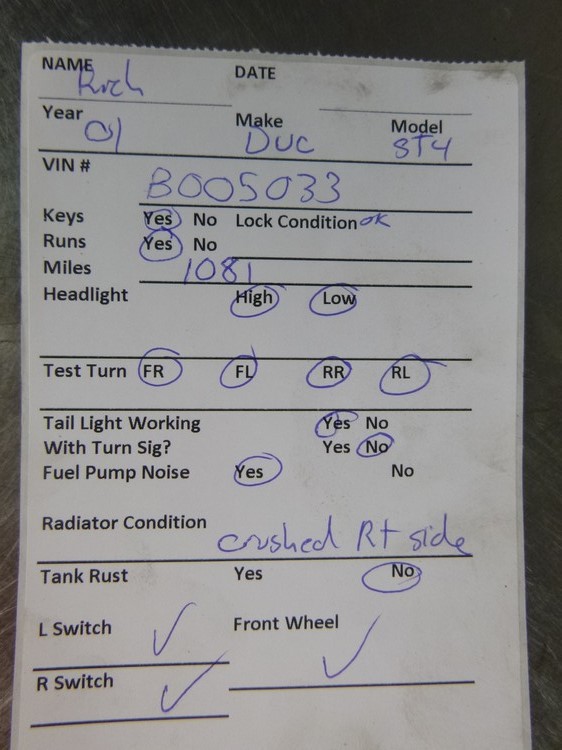 NAME Rich DATE
Year 01 Make Duc Model ST4
VIN # B005033
Keys Yes No Lock Condition OK
Runs Yes No
Miles 1081
Headlight High Low
Test Turn FR FL RR RL
Tail Light Working Yes No
With Turn Sig? Yes No
Fuel Pump Noise Yes No
Radiator Condition crushed Rt side
Tank Rust Yes No
L Switch ✓ Front Wheel ✓
R Switch ✓